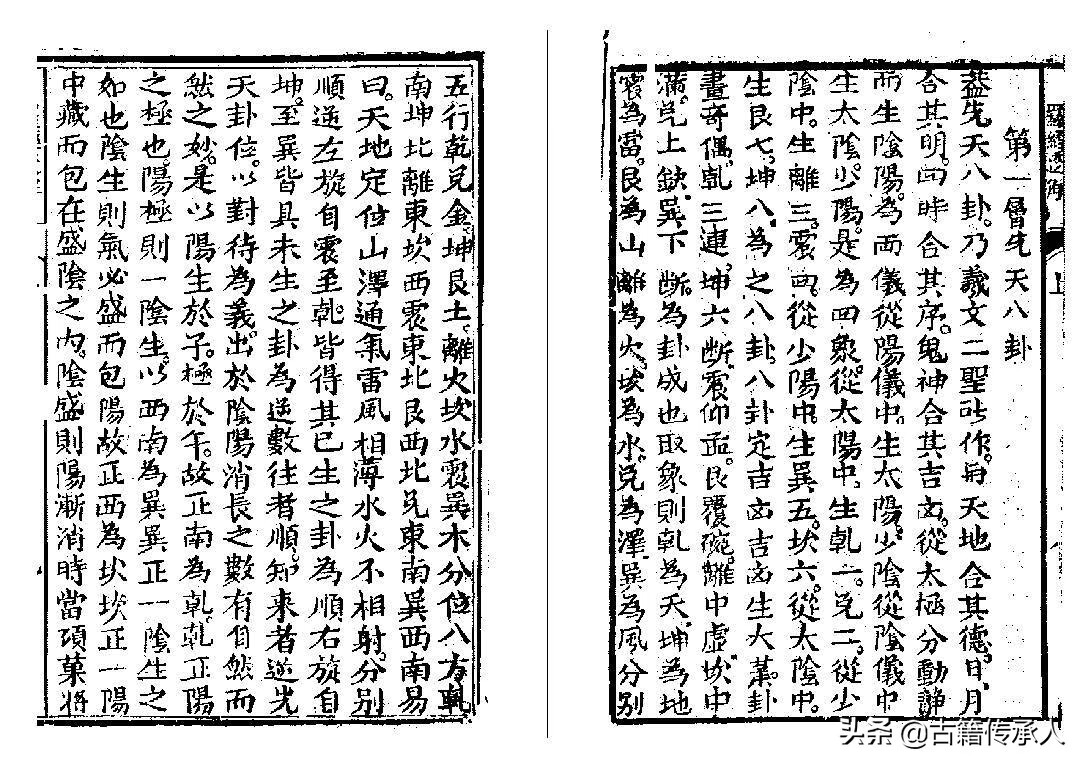 第一層先天八卦
蓋先天八卦。乃羲文二聖所作。與天地合其德。日月
合其明。四時合其序。鬼神合其吉凶。從太極分動靜
而生陰陽。為兩儀從陽儀中。生太陽。少陰從陰儀中
生太陰。少陽。是為四象。從太陽中。生乾一。兌二。從少
陰中。生離三。震四。從少陽中。生巽五。坎六。從太陰中。
生艮七。坤八。為之八卦。八卦定吉凶吉凶生大業。卦
畫奇偶。乾三連。坤六斷。震仰盂。艮覆碗。離中虛坎中
滿。兌上缺。巽下斷。為卦成也取象則乾為天。坤為地
震為雷。艮為山離為火。坎為水。兌為澤。巽為風分別
五行乾兌金。坤艮土。離火坎水震巽木分位八方乾
南坤北離東坎西震東北艮西北兌東南巽西南易
曰。天地定位山澤通氣雷風相薄水火不相射。分別
順逆左旋自震至乾。皆得其已生之卦為順右旋自
坤。至巽皆具未生之卦為逆數往者順。知來者逆先
天卦位。以對待為義。出於陰陽消長之數有自然而
然之妙。是以陽生於子。極於午。故正南為乾。乾正陽
之極也。陽極則一陰生。以西南為巽巽正一陰生之
如也陰生則氣必盛而包陽故正西為坎坎正一陽
中藏而包在盛陰之內。陰盛則陽漸消時當碩菓將
头条 @古籍传承人